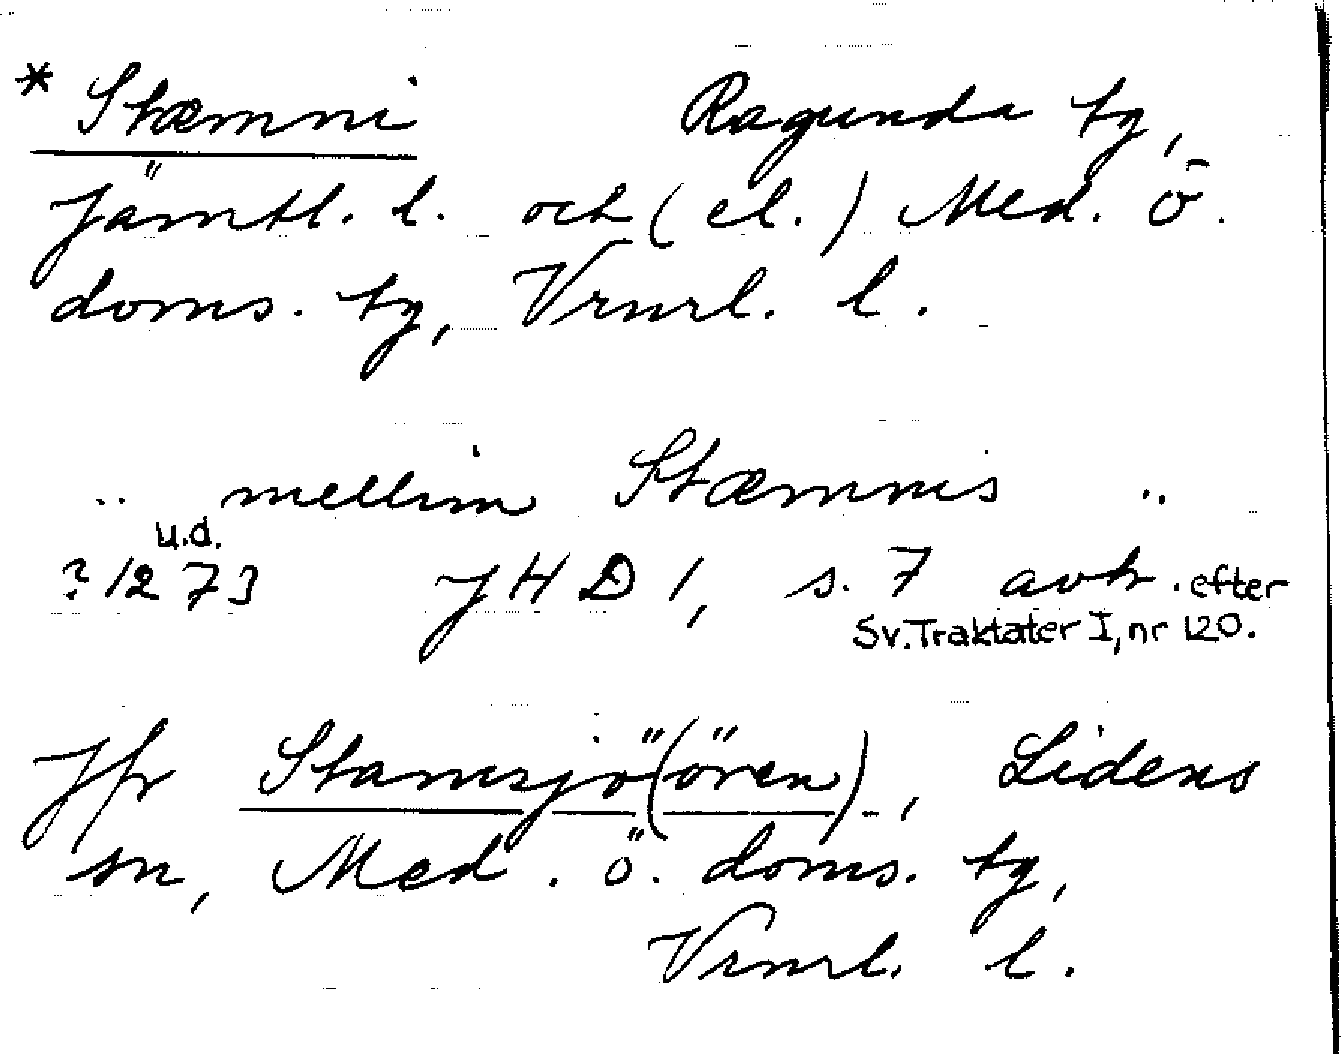 * Stæmni Ragunda tg,
Jämtl. l. och (el.) Med. ö.
doms. tg, Vrnrl. l.
.. mellim Stæmnis ..
u.d.
? 1273 JHD 1, s. 7 avtr. efter
Sv. Traktater I, nr 120.
Jfr Stamsjö(ören), Lidens
sn, Med. ö. doms. tg,
Vrnrl. l.